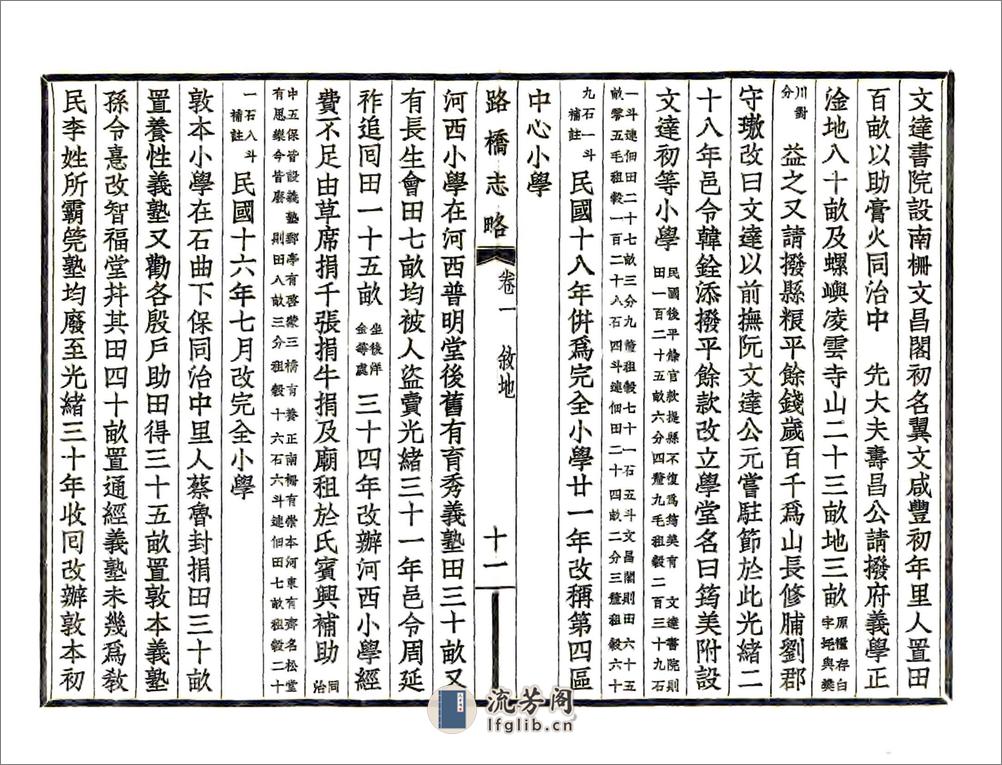 文達書院設南柵文昌閣初名翼文咸豐初年里人置田
百畝以助膏火同治中　先大夫壽昌公請撥府義學正
淦地八十畝及螺嶼凌雲寺山二十三畝地三畝
原糧存白
字垞與樊
川衢
分
益之又請撥縣粮平餘錢歲百千為山長修脯劉郡
守璈改曰文達以前撫阮文達公元嘗駐節於此光緒二
十八年邑令韓銓添撥平餘款改立學堂名曰筠美附設
文達初等小學
民國後平餘官款提縣不復為筠美有　文達書院則
田一百二十五畝六分四釐九毛租穀二百三十九石
一斗連佃田二十七畝三分九釐租穀七十一石五斗文昌閣則田六十五
畝零五毛租穀一百二十八石四斗連佃田二十四畝二分三釐租穀六十
九石一斗
補註
民國十八年併為完全小學廿一年改稱第四區
中心小學
路橋志略
卷一　敘地
十一
河西小學在河西普明堂後舊有育秀義塾田三十畝又
有長生會田七畝均被人盜賣光緒三十一年邑令周延
祚追回田一十五畝
坐後洋
金等處
三十四年改辦河西小學經
費不足由草席捐千張捐牛捐及廟租於氏賓興補助
同
治
中五保皆設義塾郵亭有啓蒙三橋有養正南柵有崇本河東有齊名松堂
有思樂今皆廢　則田八畝三分租穀十六石六斗連佃田七畝租穀二十
一石八斗
補註
民國十六年七月改完全小學
敦本小學在石曲下保同治中里人蔡魯封捐田三十畝
置養性義塾又勸各殷戶助田得三十五畝置敦本義塾
孫令憙改智福堂并其田四十畝置通經義塾未幾為教
民李姓所霸筦塾均廢至光緒三十年收回改辦敦本初
流芳阁
lfglib.cn